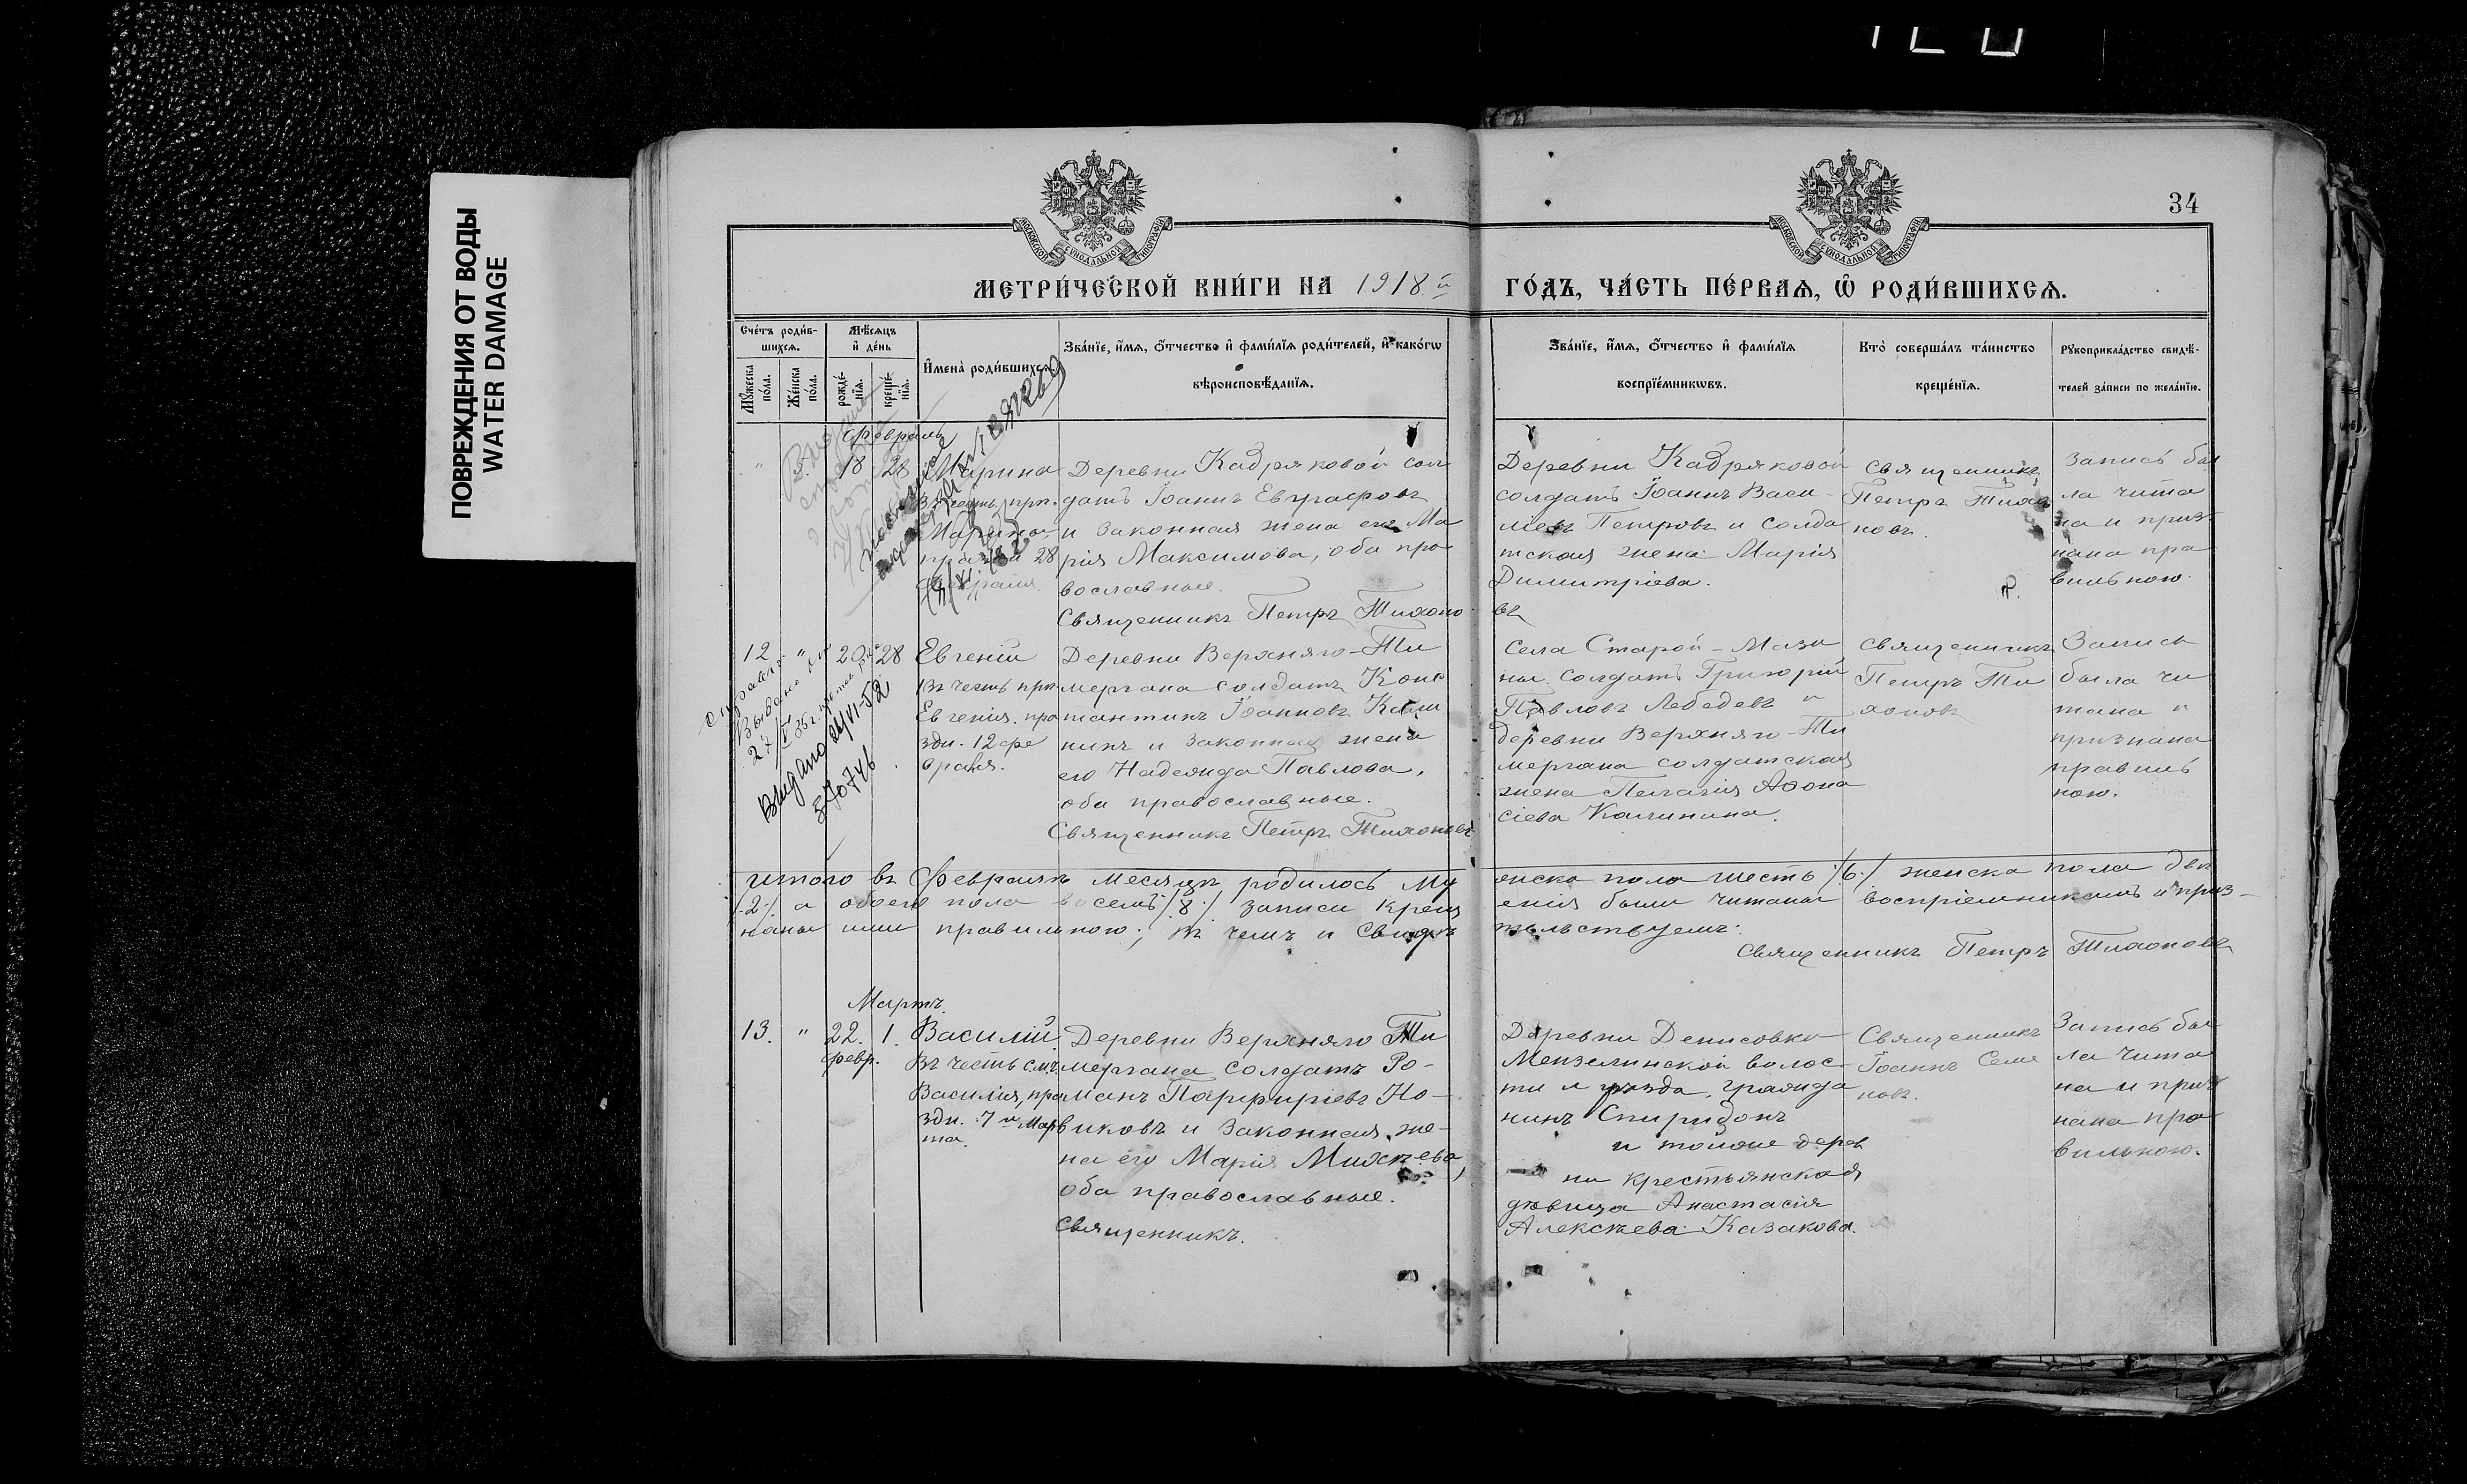 ПОВРЕЖДЕНИЯ ОТ ВОДЫ
WATER DAMAGE
34
МОСКОВСКОЙ СѴНОДАЛЬНОЙ ТИПОГРАФІИ
МОСКОВСКОЙ СѴНОДАЛЬНОЙ ТИПОГРАФІИ
МЕТРИ́ЧЕСКОЙ КНИ́ГИ НА 1918й ГО́ДЪ, ЧА́СТЬ ПЕ́РВАѦ, Ѽ РОДИ́ВШИХСѦ.
Сче́тъ роди́в-
шихсѧ.
Мꙋ́жеска по́ла.
Же́нска по́ла.
Мѣ́сѧцъ
и҆ де́нь
рожде́-
нїѧ.
креще́-
нїѧ.
И҆мена̀ роди́вшихсѧ.
Зва́нїе, и҆́мѧ, ѻ҆́тчество и҆ фами́лїѧ роди́телей, и҆ како́гѡ
вѣроисповѣ́данїѧ.
Зва́нїе, и҆́мѧ, ѻ҆́тчество и҆ фами́лїѧ
воспрїе́мникѡвъ.
Кто̀ соверша́лъ та́инство
креще́нїѧ.
Рꙋкоприкла́дство свидѣ́-
телей за́писи по жела́нїю.
Февраль
18 28 Марина
въ честь прп.
Марины,
28
февраля.
Деревни Кадряковой сол
датъ Іоаннъ Евграфовъ
и законная жена его Ма
рія Максимова, оба пра
вославные.
Священникъ Петръ Тихоно
въ
Деревни Кадряковой
солдатъ Іоаннъ Васи-
ліевъ Петровъ и солда
тская жена Марія
Димитріева.
Священникъ
Петръ Тихо
новъ.
Запись бы
ла чита
на и приз
нана пра
вильною.
12 " 20 28 Евгеній
въ честь прп.
Евгенія. пра
здн. 12 фе
враля.
Выдано 24/VI-52
Деревни Верхняго-Ти
мергана солдатъ Конс
тантинъ Іоанновъ Кали
нинъ и законная жена
его Надежда Павлова,
оба православные.
Священникъ Петръ Тихоновъ
Села Старой-Мази
ны солдатъ Григорій
Павловъ Лебедевъ и
деревни Верхняго-Ти
мергана солдатская
жена Пелагія Афона
сіева Калинина.
Священникъ
Петръ Ти
хоновъ
Запись
была чи
тана и
признана
правиль
ною.
Итого въ Февралѣ месяцѣ родилось му жска пола шесть /6/ женска пола двѣ
/2/ а обоего пола восемь /8/ записи крещ енія были читаны воспріемникамъ и приз-
наны ими правильною; въ чемъ и свидѣ тельствуемъ:
Священникъ Петръ Тихоновъ
Мартъ.
13. " 22. 1. Василій
февр.
Въ честь смч.
Василія, пра
здн. 7го Мар
та.
Деревни Верхняго Ти
мергана солдатъ Ро-
манъ Парфиріевъ Но-
виковъ и законная же-
на его Марія Михѣева,
оба православные.
Священникъ.
Деревни Денисовки
Мензелинской волос-
ти и уѣзда, гражда
нинъ Спиридонъ
и тойже дерев
ни крестьянская
дѣвица Анастасія
Алексѣева Казакова.
Священникъ
Іоаннъ Семе
новъ.
Запись бы
ла чита
на и приз
нана пра
вильною.